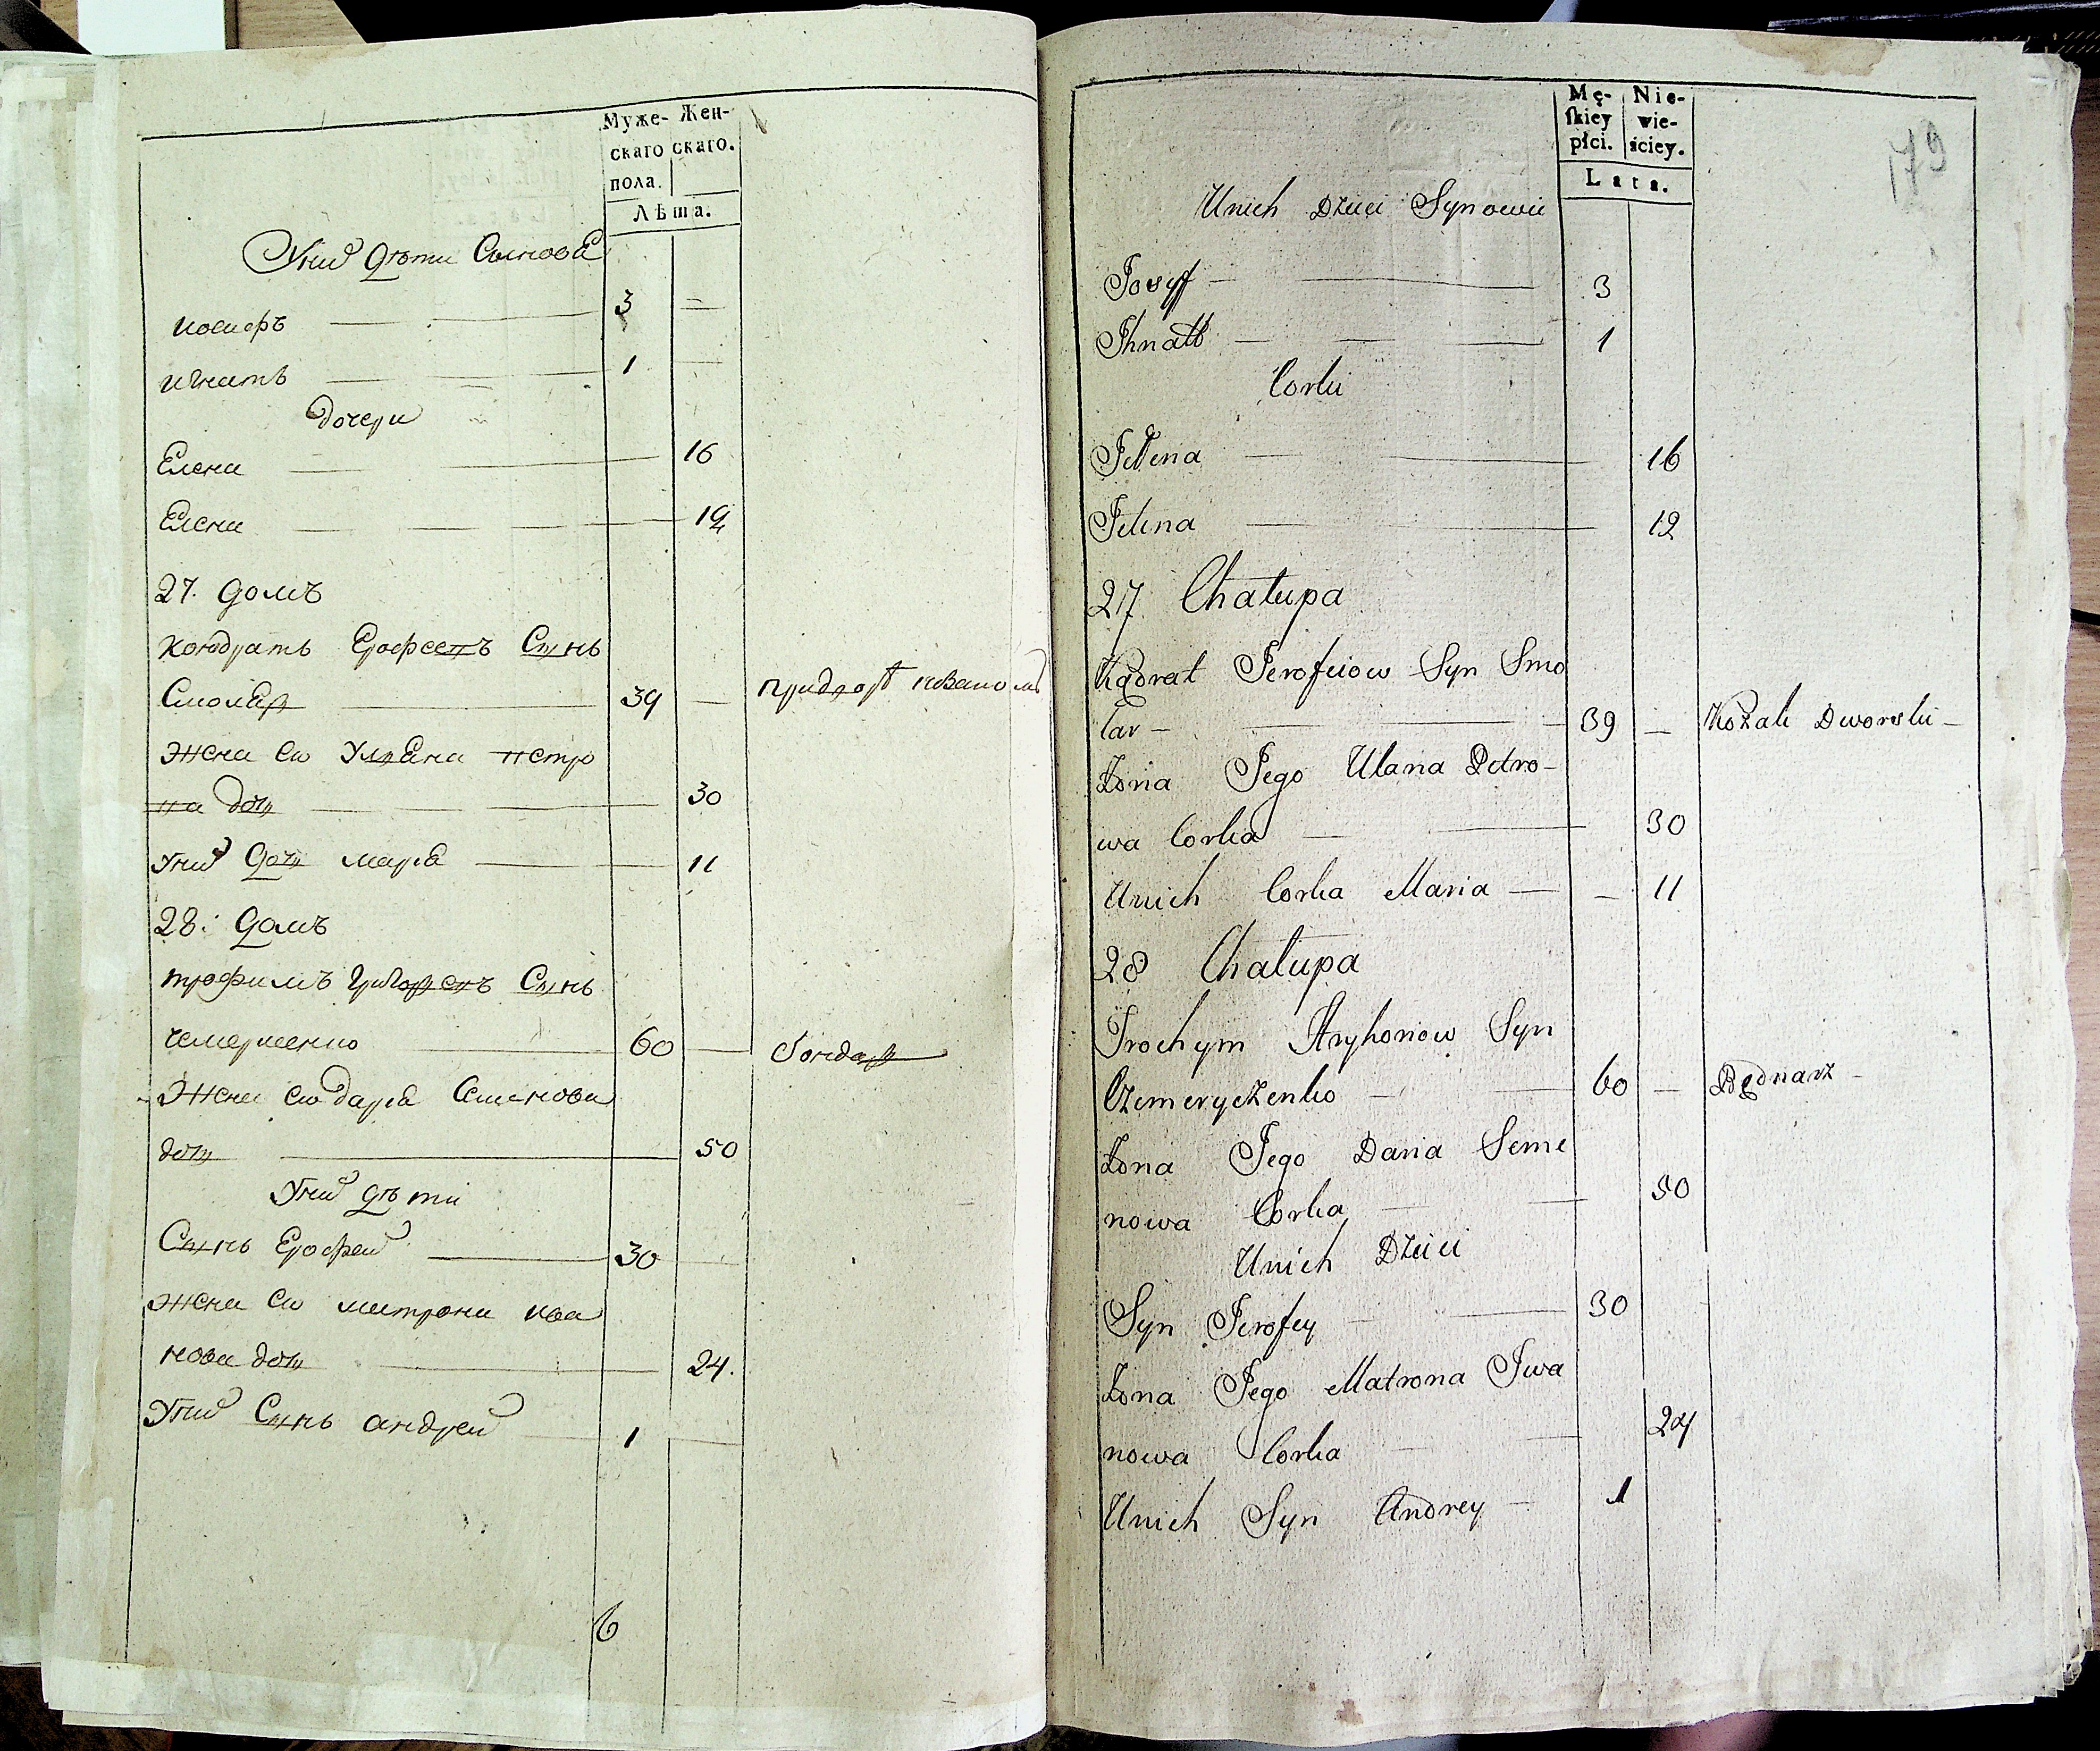 Муже- Жен-
скаго скаго.
пола.
Лѣта.
Уних дѣти Синове
иосифъ 3
игнатъ 1
дочери
Елена 16
Елена 12
27. домъ
кондратъ Ерофеевъ Сынъ
Смоляр 39
жена ею Уляна петро
ва дочь 30
Уних дочь маря 11
28: домъ
трофимъ Григорьевъ Сынъ
чемериченко 60 бондар
жена ею даря Семенова
дочь 50
Уних дѣти
Сынъ Ерофей 30
жена ею матрона ива
нова дочь 24.
Уних Сынъ андрей 1
6
Mę- Nie-
ſkiey wie-
płci. ściey.
Lata.
179
Unich Dzieci Synowie
Josyff 3
Ihnatt 1
Corki
Jellena 16
Jelena 12
27 Chałupa
Kądrat Jerofeiow Syn Smo
lar 39 Kozak Dworski
Żona Jego Ulana Petro-
wa Corka 30
Unich Corka Maria 11
28 Chałupa
Trochym Hryhoriow Syn
Czemeryczenko 60 Będnarz
Żona Jego Daria Seme
nowa Corka 50
Unich Dzieci
Syn Jerofey 30
Żona Jego Matrona Iwa
nowa Corka 24
Unich Syn Andrey 1